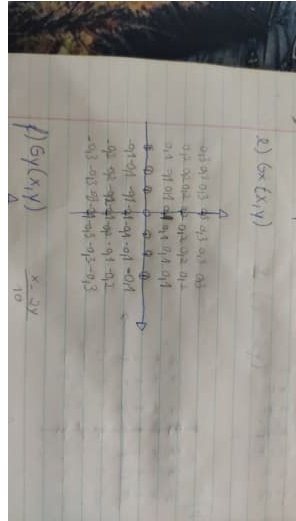 e) Gx(x,y)
0,3 0,3 0,3 0,3 0,3 0,3
0,2 0,2 0,2 0,2 0,2 0,2
0,1 0,1 0,1 0,1 0,1 0,1
0 0 0 0 0 0 0
-0,1 -0,1 -0,1 -0,1 -0,1 -0,1 -0,1
-0,2 -0,2 -0,2 -0,2 -0,2 -0,2 -0,2
-0,3 -0,3 -0,3 -0,3 -0,3 -0,3 -0,3
f) Gy(x,y)
x - 2y
10